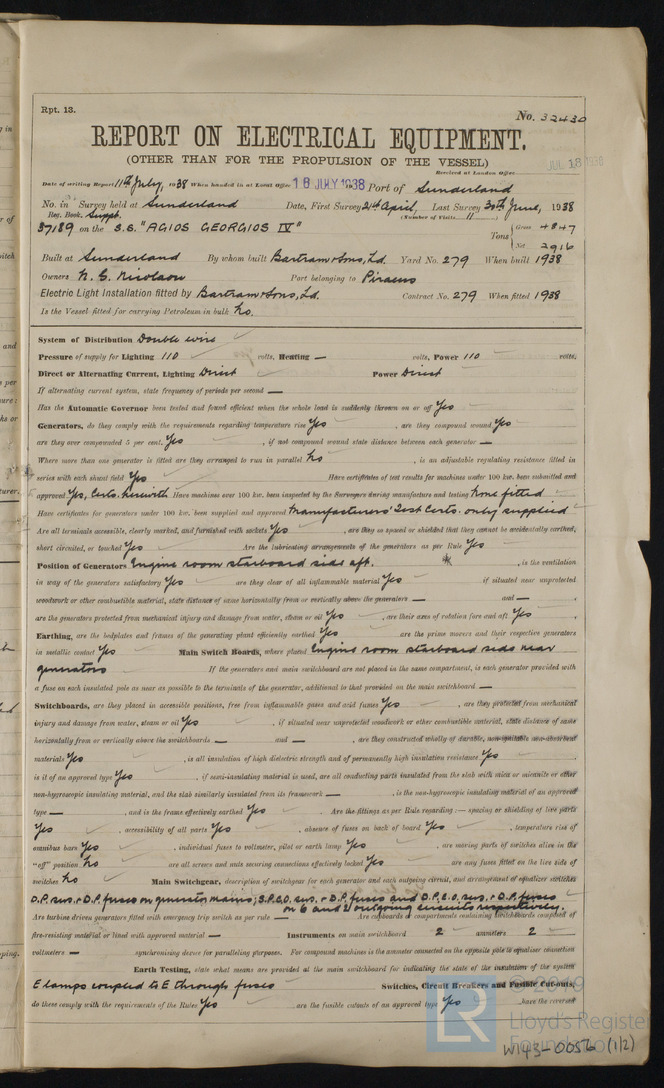 Rpt. 13.
No. 32430
REPORT ON ELECTRICAL EQUIPMENT.
(OTHER THAN FOR THE PROPULSION OF THE VESSEL)
Received at London Office JUL 18 1938
Date of writing Report 11th July, 1938 When handed in at Local Office 16 JULY 1938 Port of Sunderland
No. in Survey held at Sunderland Date, First Survey 21st April, Last Survey 30th June, 1938
Reg. Book. Suppt. (Number of Visits 11)
37189 on the S.S. "AGIOS GEORGIOS IV" Tons { Gross 4847 Net 2916
Built at Sunderland By whom built Bartram & Sons, Ld. Yard No. 279 When built 1938
Owners N. G. Nicolaou Port belonging to Piraeus
Electric Light Installation fitted by Bartram & Sons, Ld. Contract No. 279 When fitted 1938
Is the Vessel fitted for carrying Petroleum in bulk No.
System of Distribution Double wire
Pressure of supply for Lighting 110 volts, Heating — volts, Power 110 volts.
Direct or Alternating Current, Lighting Direct Power Direct
If alternating current system, state frequency of periods per second —
Has the Automatic Governor been tested and found efficient when the whole load is suddenly thrown on or off Yes
Generators, do they comply with the requirements regarding temperature rise Yes, are they compound wound Yes
are they over compounded 5 per cent. Yes, if not compound wound state distance between each generator —
Where more than one generator is fitted are they arranged to run in parallel No, is an adjustable regulating resistance fitted in
series with each shunt field Yes Have certificates of test results for machines under 100 kw. been submitted and
approved Yes, Certs. herewith Have machines over 100 kw. been inspected by the Surveyors during manufacture and testing None fitted
Have certificates for generators under 100 kw. been supplied and approved Manufacturers' Test Certs. only supplied
Are all terminals accessible, clearly marked, and furnished with sockets Yes, are they so spaced or shielded that they cannot be accidentally earthed,
short circuited, or touched Yes Are the lubricating arrangements of the generators as per Rule Yes
Position of Generators Engine room starboard side aft. *, is the ventilation
in way of the generators satisfactory Yes are they clear of all inflammable material Yes if situated near unprotected
woodwork or other combustible material, state distance of same horizontally from or vertically above the generators — and —
are the generators protected from mechanical injury and damage from water, steam or oil Yes, are their axes of rotation fore and aft Yes
Earthing, are the bedplates and frames of the generating plant efficiently earthed Yes are the prime movers and their respective generators
in metallic contact Yes Main Switch Boards, where placed Engine room starboard side near
generators If the generators and main switchboard are not placed in the same compartment, is each generator provided with
a fuse on each insulated pole as near as possible to the terminals of the generator, additional to that provided on the main switchboard —
Switchboards, are they placed in accessible positions, free from inflammable gases and acid fumes Yes, are they protected from mechanical
injury and damage from water, steam or oil Yes, if situated near unprotected woodwork or other combustible material, state distance of same
horizontally from or vertically above the switchboards — and —, are they constructed wholly of durable, non-ignitable non-absorbent
materials Yes, is all insulation of high dielectric strength and of permanently high insulation resistance Yes
is it of an approved type Yes, if semi-insulating material is used, are all conducting parts insulated from the slab with mica or micanite or other
non-hygroscopic insulating material, and the slab similarly insulated from its framework —, is the non-hygroscopic insulating material of an approved
type —, and is the frame effectively earthed Yes Are the fittings as per Rule regarding :— spacing or shielding of live parts
Yes, accessibility of all parts Yes, absence of fuses on back of board Yes, temperature rise of
omnibus bars Yes, individual fuses to voltmeter, pilot or earth lamp Yes, are moving parts of switches alive in the
"off" position No are all screws and nuts securing connections effectively locked Yes are any fuses fitted on the live side of
switches No Main Switchgear, description of switchgear for each generator and each outgoing circuit, and arrangement of equalizer switches
D.P. sws. & D.P. fuses on generator mains; S.P.C.O. sws. & D.P. fuses and D.P.C.O. sws. & D.P. fuses
on 6 and 2 outgoing circuits respectively.
Are turbine driven generators fitted with emergency trip switch as per rule — Are cupboards or compartments containing switchboards composed of
fire-resisting material or lined with approved material — Instruments on main switchboard 2 ammeters 2
voltmeters — synchronising device for paralleling purposes. For compound machines is the ammeter connected on the opposite pole to equaliser connection
Earth Testing, state what means are provided at the main switchboard for indicating the state of the insulation of the system
E lamps coupled to E through fuses Switches, Circuit Breakers and Fusible Cut-outs,
do these comply with the requirements of the Rules Yes, are the fusible cutouts of an approved type Yes, have the reversed
© 2019
LR
Lloyd's Register
Foundation
W143-0056 (1/2)